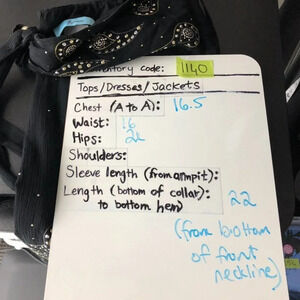 Inventory code: 1140
Tops/Dresses/Jackets
Chest (A to A): 16.5
Waist: 16
Hips: 21
Shoulders:
Sleeve length (from armpit):
Length (bottom of collar): 22
to bottom hem)
(from bottom
of front
neckline)